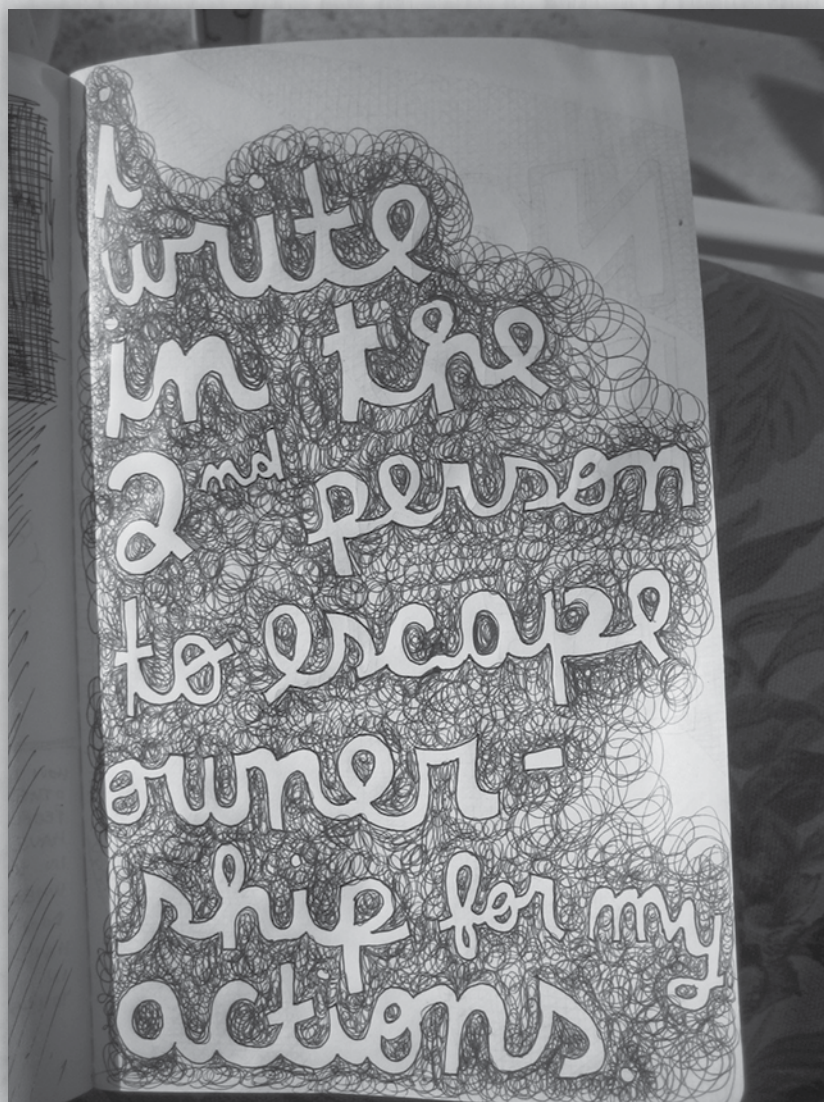 i
write
in the
2nd person
to escape
owner-
ship for my
actions.